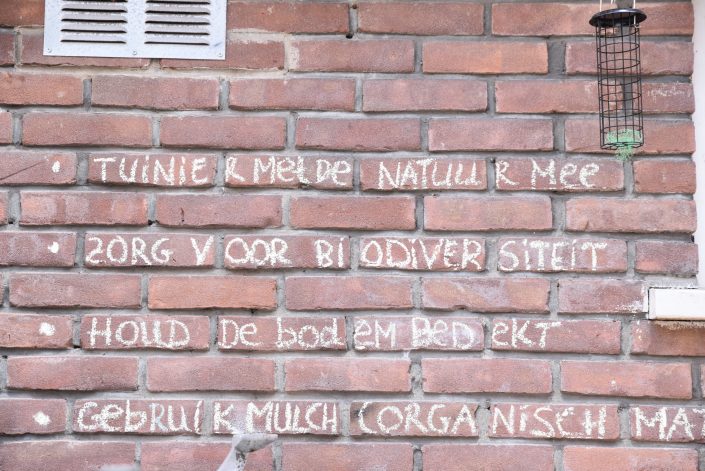 • TUINIER MELDE NATUUR MEE
• ZORG VOOR BIODIVERSITEIT
• HOUD DE bodem BEDEKT
• Gebruik MULCH (ORGANISCH MAT